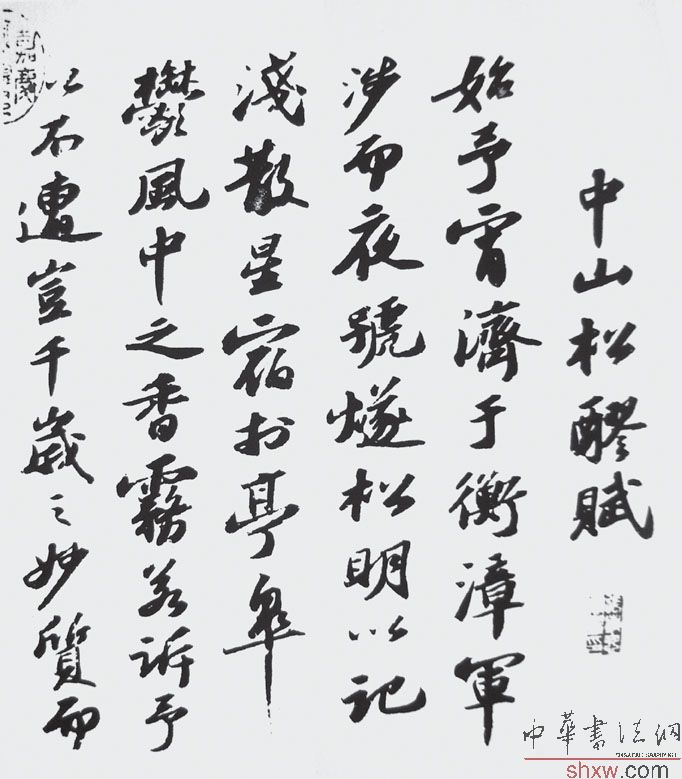 中山松醪賦
始予宵濟于衡漳軍
涉而夜號燧松明以記
淺散星宿於亭皋
鬱風中之香霧若訴予
以不遭豈千歲之妙質而
中華書法網
shxw.com